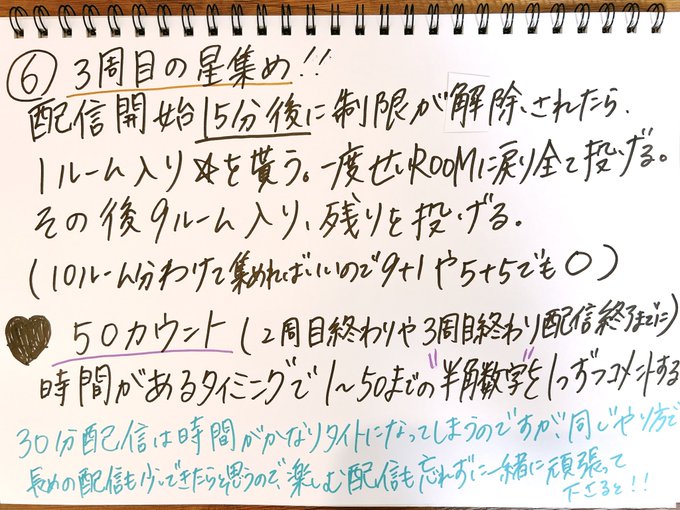 ⑥ 3周目の星集め!!
配信開始15分後に制限が解除されたら、
1ルーム入り☆を貰う。一度せいROOMに戻り全て投げる。
その後9ルーム入り、残りを投げる。
(10ルーム分わけて集めればいいので9+1や5+5でも○)
♥ 50カウント(2周目終わりや3周目終わり配信終了までに)
時間があるタイミングで1〜50までの"半角数字"を1つずつコメントする
30分配信は時間がかなりタイトになってしまうのですが、同じやり方で
長めの配信も少しできたらと思うので、楽しむ配信も忘れずに一緒に頑張って
下さると!!